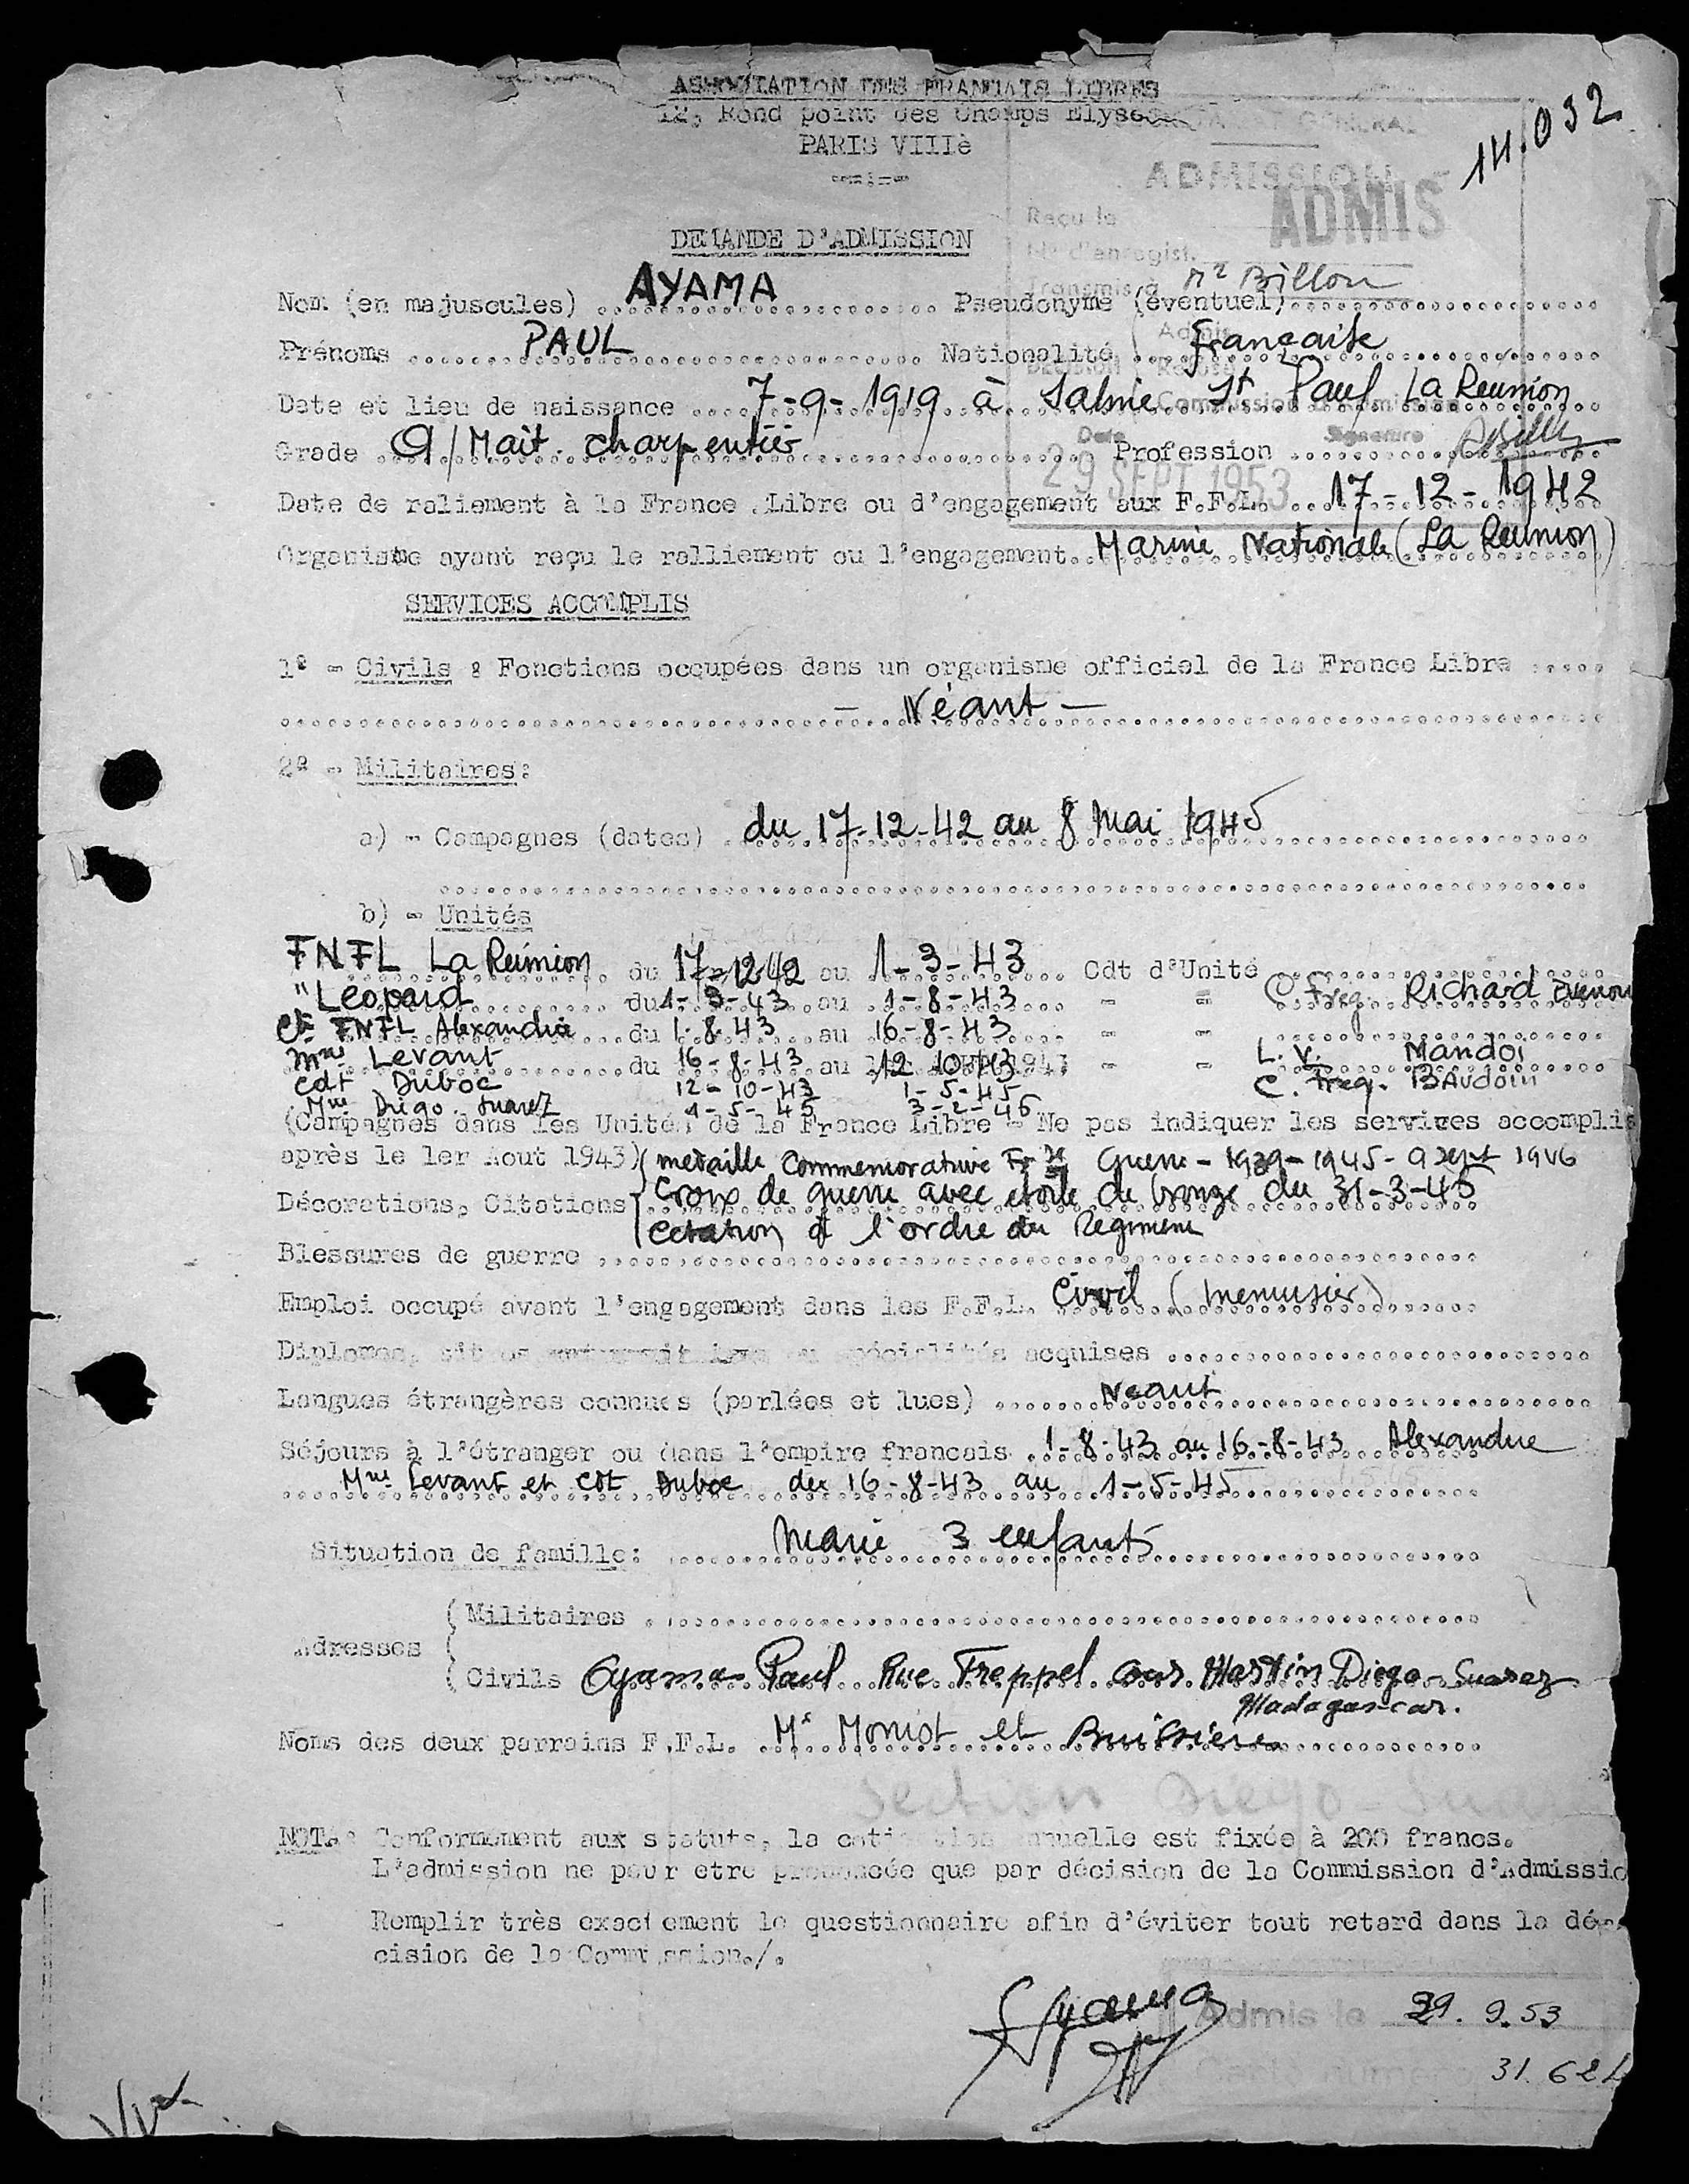 ASSOCIATION DES FRANCAIS LIBRES
12, Rond point des Champs Elysées
PARIS VIIIè
14.032
GENERAL
ADMISSION
ADMIS
Reçu le
N° d'enregist.
Transmis à Mr Billon
DEMANDE D'ADMISSION
Nom (en majuscules) AYAMA Pseudonyme (éventuel)
Prénoms PAUL Nationalité Française
Date et lieu de naissance 7-9-1919 à Saline St Paul La Reunion
Grade Q/Mait. charpentier Profession
Date Signature
29 SEPT 1953
Date de raliement à la France Libre ou d'engagement aux F.F.L. 17-12-1942
Organisme ayant reçu le ralliement ou l'engagement Marine Nationale (La Reunion)
SERVICES ACCOMPLIS
1º - Civils : Fonctions occupées dans un organisme officiel de la France Libre
- Néant -
2º - Militaires:
a) - Campagnes (dates) du 17-12-42 au 8 Mai 1945
b) - Unités
FNFL La Reunion du 17-12-42 au 1-3-43 Cdt d'Unité
" Leopard du 1-3-43 au 1-8-43 - - C. Freg. Richard
FNFL Alexandrie du 1-8-43 au 16-8-43 - -
Mne Levant du 16-8-43 au 12-10-43 - - L.V. Mandoi
Cdt Duboc 12-10-43 1-5-45 C. Freg. BAudoin
Mne Diego Suarez 1-5-45 3-2-46
(Campagnes dans les Unités de la France Libre - Ne pas indiquer les services accomplis
après le 1er Aout 1943) (medaille Commemorative Guerre - 1939-1945 - 1946
Décorations, Citations Croix de guerre avec etoile de bronze du 31-3-45
Citation à l'ordre du Regiment
Blessures de guerre
Emploi occupé avant l'engagement dans les F.F.L. Civil (menuisier)
Diplomes, acquises
Langues étrangères connues (parlées et lues) Neant
Séjours à l'étranger ou dans l'empire francais 1-8-43 au 16-8-43 Alexandrie
Mne Levant et Cdt Duboc du 16-8-43 au 1-5-45
Situation de famille: Marié 3 enfants
Adresses
(Militaires
(Civils Ayama Paul Rue Freppel Martin Diego-Suarez
Madagascar.
Noms des deux parrains F.F.L. Mr Moniot et Buissière
Section Diego-Suarez
NOTA: Conformément aux statuts, la cotisation annuelle est fixée à 200 francs.
L'admission ne peur etre prononcée que par décision de la Commission d'Admissio
Remplir très exactement le questionnaire afin d'éviter tout retard dans la dé-
cision de la Commission./.
Ayama
Admis le 29. 9. 53
Carte numéro 31.62